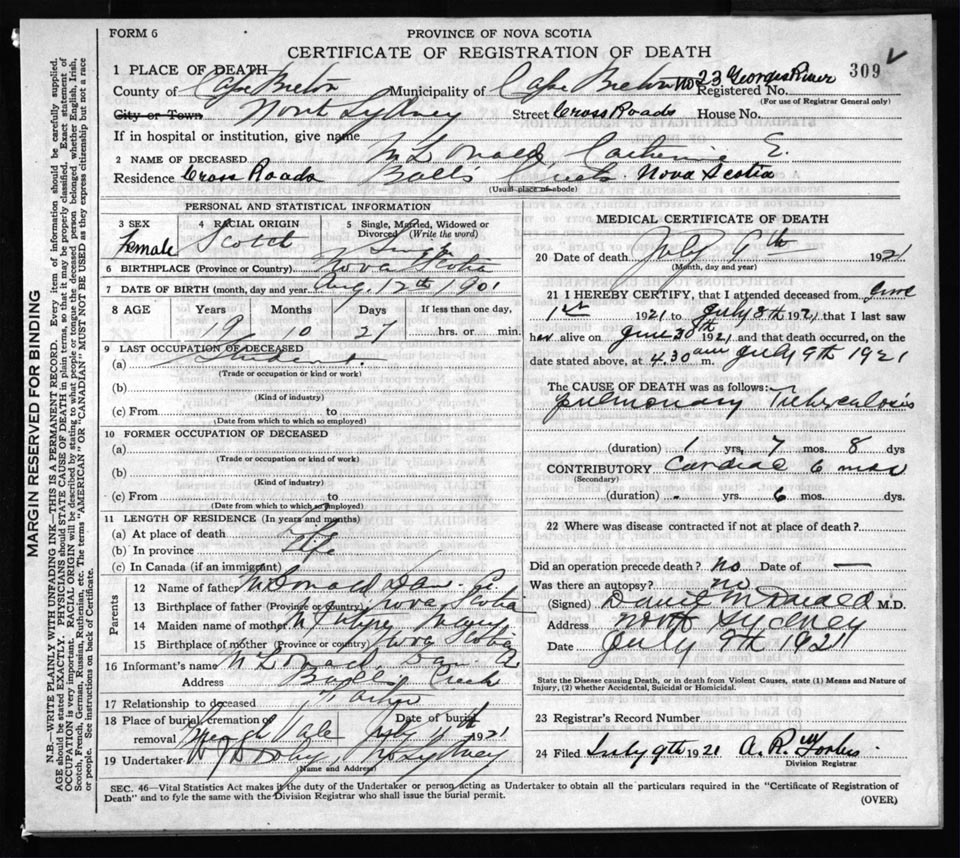 FORM 6
PROVINCE OF NOVA SCOTIA
CERTIFICATE OF REGISTRATION OF DEATH
309
1 PLACE OF DEATH
County of Cape Breton Municipality of Cape Breton No 23 Georges River Registered No.
(For use of Registrar General only)
City or Town North Sydney Street Cross Roads House No.
If in hospital or institution, give name
2 NAME OF DECEASED McDonald Catherine E.
Residence Cross Roads Balls Creek Nova Scotia
(Usual place of abode)
PERSONAL AND STATISTICAL INFORMATION
3 SEX Female
4 RACIAL ORIGIN Scotch
5 Single, Married, Widowed or Divorced (Write the word) Single
6 BIRTHPLACE (Province or Country) Nova Scotia
7 DATE OF BIRTH (month, day and year) Aug. 12th 1901
8 AGE Years Months Days If less than one day,
19 10 27 hrs. or min.
9 LAST OCCUPATION OF DECEASED
(a) Student
(Trade or occupation or kind of work)
(b)
(Kind of industry)
(c) From to
(Date from which to which so employed)
10 FORMER OCCUPATION OF DECEASED
(a)
(Trade or occupation or kind of work)
(b)
(Kind of industry)
(c) From to
(Date from which to which so employed)
11 LENGTH OF RESIDENCE (In years and months)
(a) At place of death
(b) In province Life
(c) In Canada (if an immigrant)
Parents
12 Name of father McDonald Dan.
13 Birthplace of father (Province or country) Nova Scotia
14 Maiden name of mother Mary
15 Birthplace of mother (Province or country) Nova Scotia
16 Informant's name McDonald Dan. A
Address Balls Creek
17 Relationship to deceased
18 Place of burial, cremation or removal Date of burial July 11th 1921
19 Undertaker No Sydney
(Name and Address)
MEDICAL CERTIFICATE OF DEATH
20 Date of death July 9th 1921
(Month, day and year)
21 I HEREBY CERTIFY, that I attended deceased from June
1st 1921 to July 8th 1921 that I last saw
her alive on June 30th 1921 and that death occurred, on the
date stated above, at 4.30 am m. July 9th 1921
The CAUSE OF DEATH was as follows:
pulmonary Tuberculosis
(duration) 1 yrs, 7 mos. 8 dys
CONTRIBUTORY Cardiac 6 mos
(Secondary)
(duration) - yrs. 6 mos. dys.
22 Where was disease contracted if not at place of death?
Did an operation precede death? no Date of —
Was there an autopsy? no
(Signed) M.D.
Address North Sydney
Date July 9th 1921
State the Disease causing Death, or in death from Violent Causes, state (1) Means and Nature of Injury, (2) whether Accidental, Suicidal or Homicidal.
23 Registrar's Record Number
24 Filed July 9th 1921 A. R. Forbes
Division Registrar
SEC. 46—Vital Statistics Act makes it the duty of the Undertaker or person acting as Undertaker to obtain all the particulars required in the "Certificate of Registration of
Death" and to fyle the same with the Division Registrar who shall issue the burial permit.
(OVER)
MARGIN RESERVED FOR BINDING
N.B.—WRITE PLAINLY WITH UNFADING INK—THIS IS A PERMANENT RECORD. Every item of information should be carefully supplied.
AGE should be stated EXACTLY. PHYSICIANS should STATE CAUSE OF DEATH in plain terms, so that it may be properly classified. Exact statement of
OCCUPATION is very important. RACIAL ORIGIN will be described by stating to what people or tongue the deceased person belonged whether English, Irish,
Scotch, French, German, Russian, Ruthenian, etc. The terms "AMERICAN" OR "CANADIAN" MUST NOT BE USED as they express citizenship but not a race
or people. See instructions on back of Certificate.